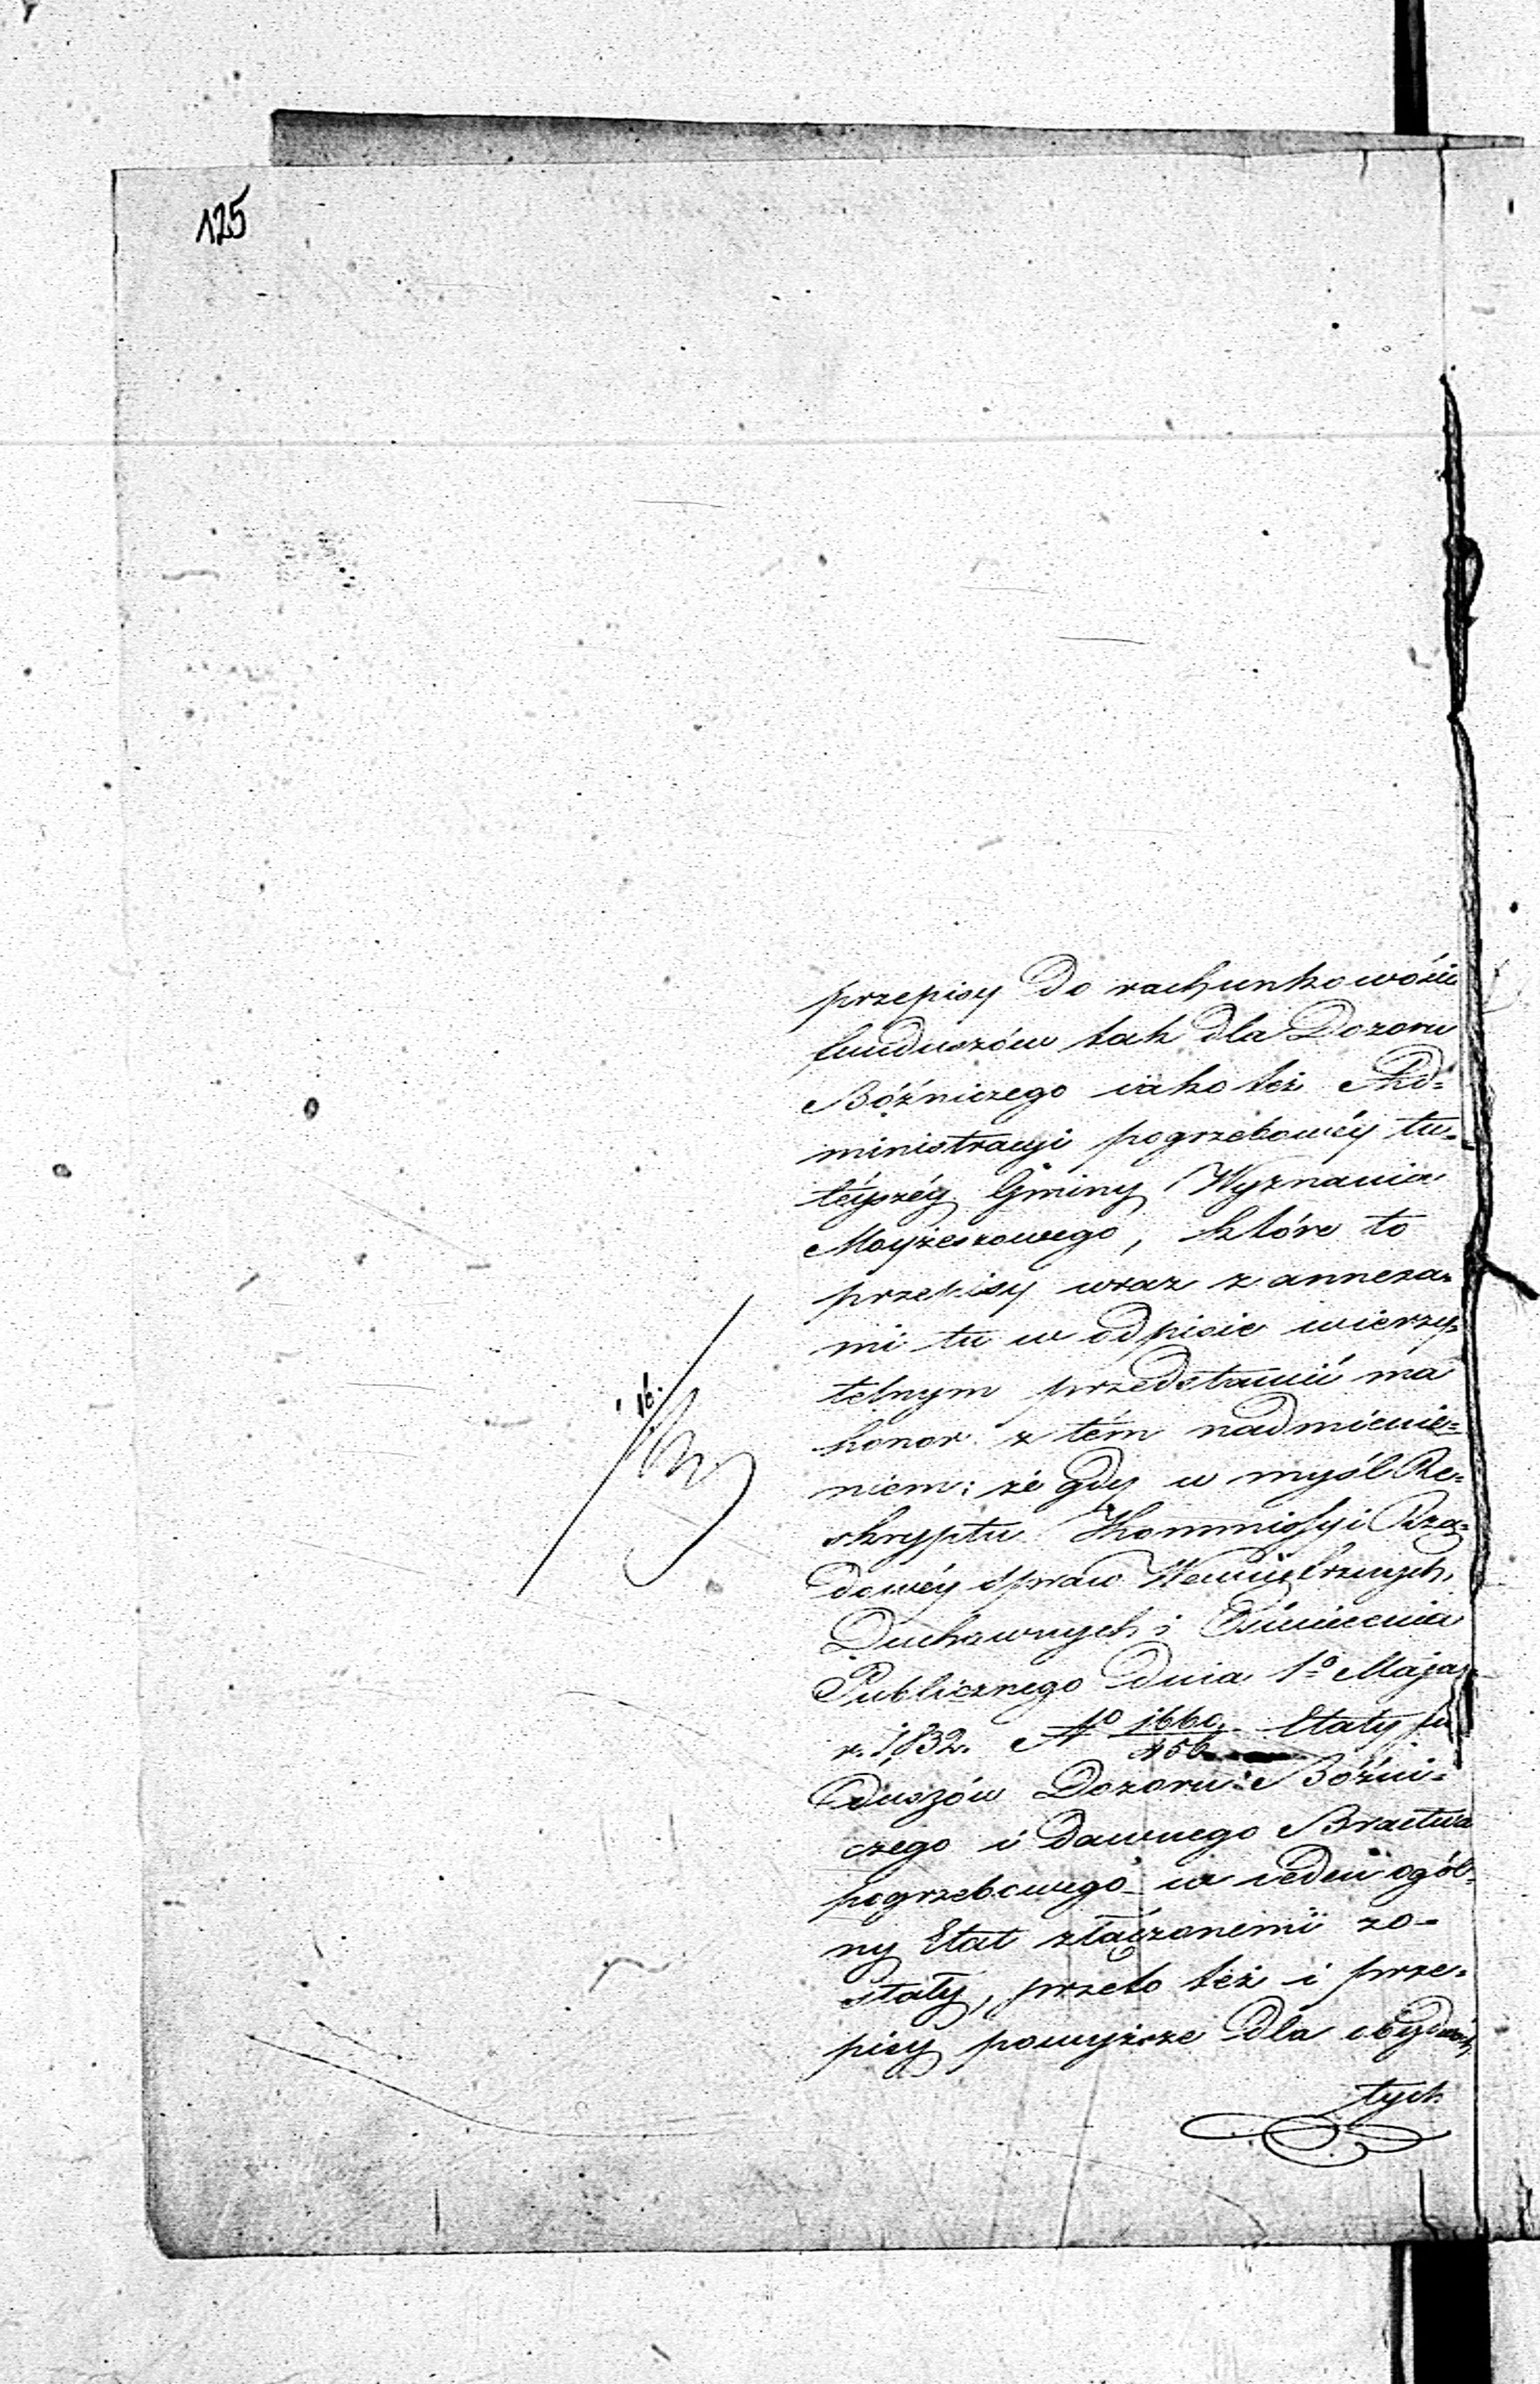 125
przepisy do rachunkowości
funduszów tak dla Dozoru
Bóźniczego iako też Ad=
ministracyi pogrzebowéy tu=
téyszéy Gminy Wyznania
Moyżeszowego, które to
przepisy wraz z annexa=
mi tu w odpisie wierzy=
telnym przedstawić ma
honor z tém nadmienie=
niem: że gdy w myśl Re=
skryptu Kommissyi Rzą=
dowéy Spraw Wewnętrznych,
Duchownych i Oświecenia
Publicznego Dnia 1º Maja
r. 1832. Nº 1660/456 Etaty fu
duszów Dozoru Bóźni=
czego i dawnego Bractwa
pogrzebowego w ieden ogól=
ny Etat złączonemi zo=
stały, przeto też i prze=
pisy powyższe dla obydwóch
tych